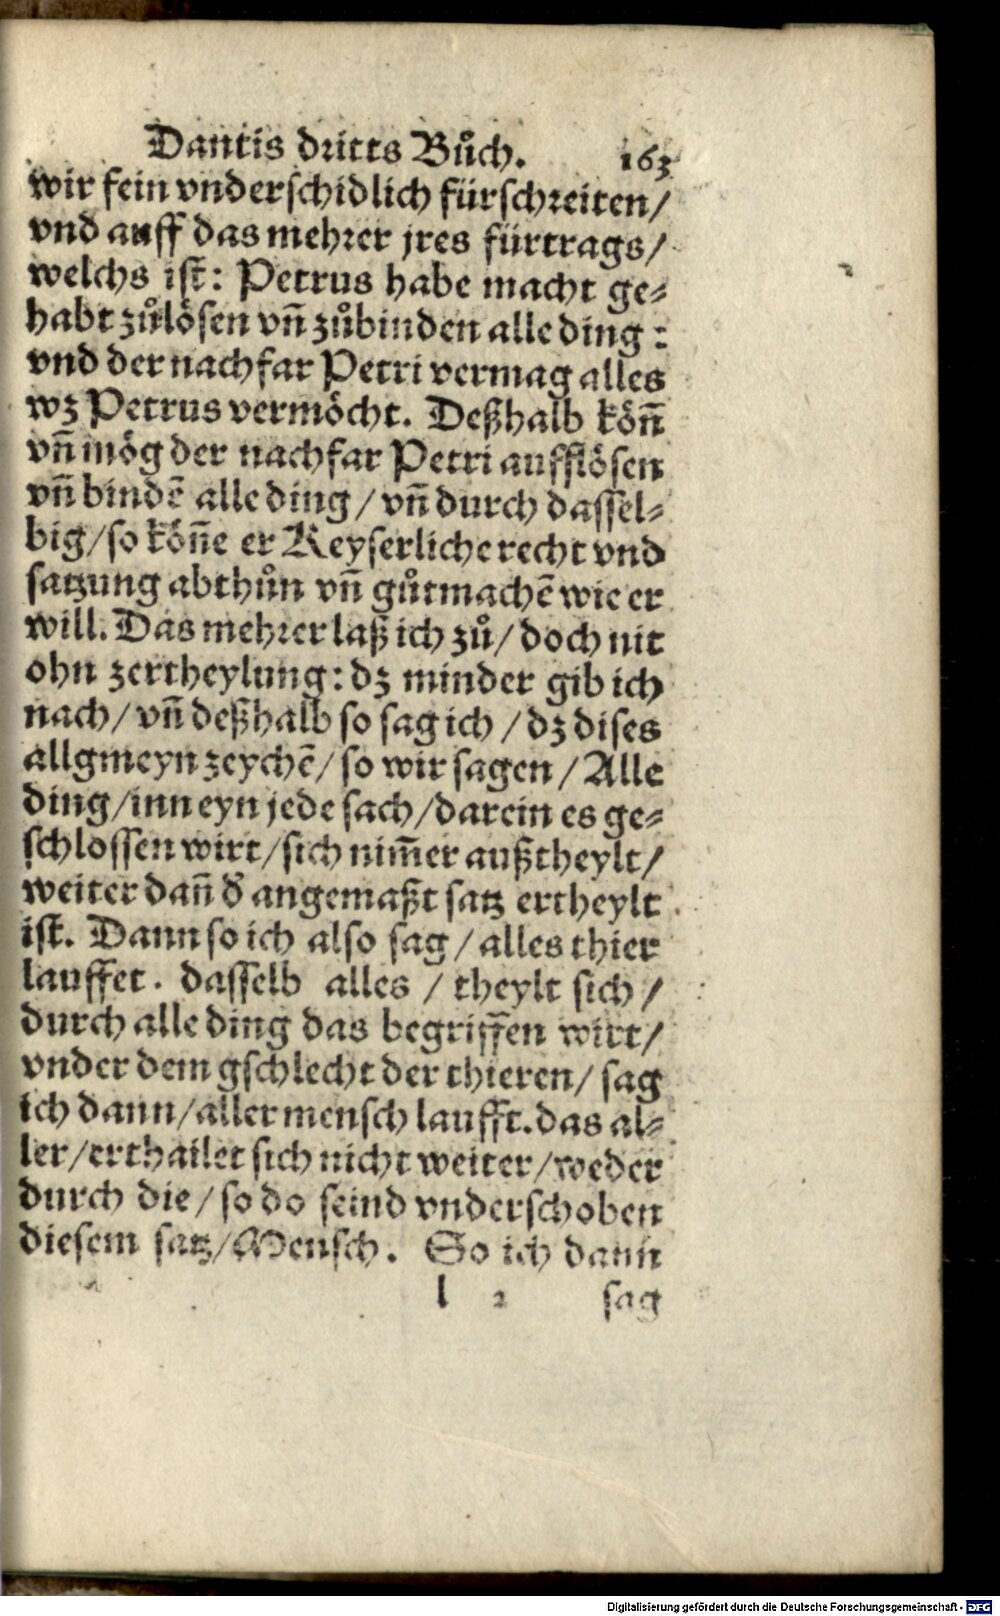 Dantis dritts Bůch. 163
wir fein vnderschidlich fürschreiten/
vnd auff das mehrer jres fürtrags/
welchs ist: Petrus habe macht ge⸗
habt zůlösen vñ zůbinden alle ding:
vnd der nachfar Petri vermag alles
wz Petrus vermöcht. Deßhalb köñ
vñ mög der nachfar Petri aufflösen
vñ bindẽ alle ding/ vñ durch dassel⸗
big/ so köñe er Keyserliche recht vnd
satzung abthůn vñ gůtmachẽ wie er
will. Das mehrer laß ich zů/ doch nit
ohn zertheylung: dz minder gib ich
nach/ vñ deßhalb so sag ich/ dz dises
allgmeyn zeychẽ/ so wir sagen/ Alle
ding/ inn eyn jede sach/ darein es ge⸗
schlossen wirt/ sich nim̃er außtheylt/
weiter dañ d̕ angemaßt satz ertheylt
ist. Dann so ich also sag/ alles thier
lauffet. dasselb alles/ theylt sich/
durch alle ding das begriffen wirt/
vnder dem gschlecht der thieren/ sag
ich dann/ aller mensch laufft. das al⸗
ler/ erthailet sich nicht weiter/ weder
durch die/ so do seind vnderschoben
diesem satz/ Mensch. So ich dann
l 2 sag
Digitalisierung gefördert durch die Deutsche Forschungsgemeinschaft - DFG